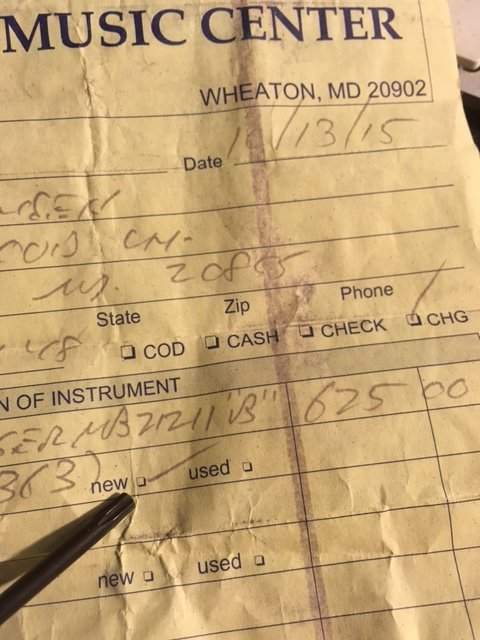 MUSIC CENTER
WHEATON, MD 20902
Date 10/13/15
20855
State Zip Phone
COD CASH CHECK CHG
N OF INSTRUMENT
"B" 625 00
363) new used
new used